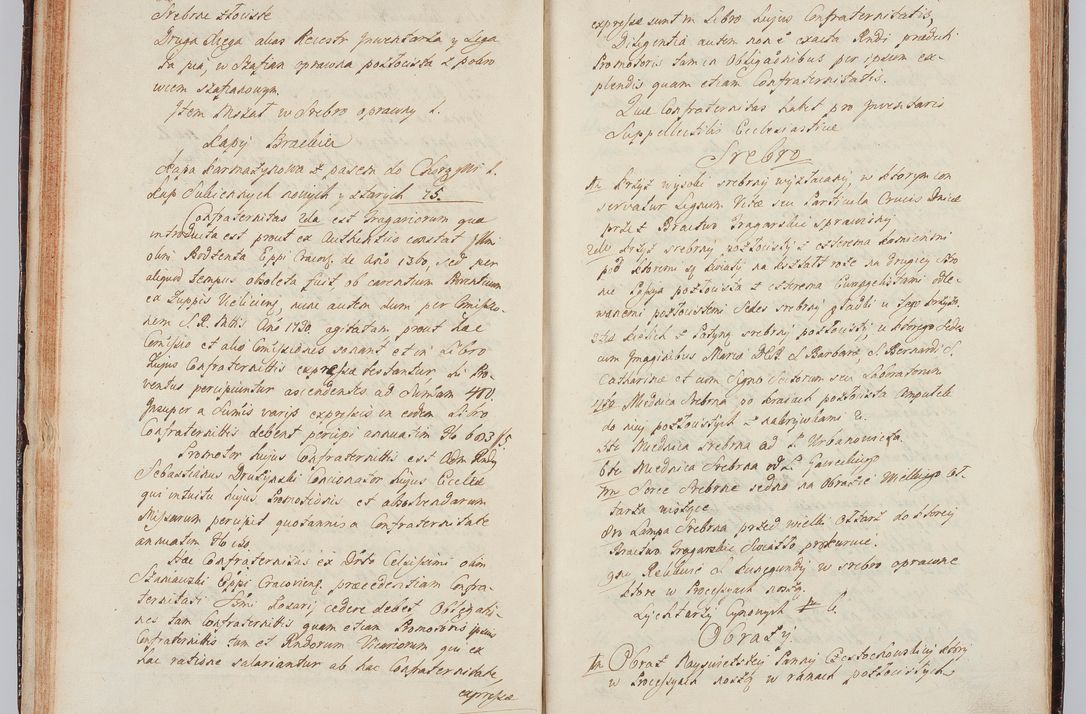 Srebrne złociste
Druga Xięga alias Reiestr Jnwentarza y Lega
ta pia, w Szafian oprawna pozłocista z pokro
wcem szafianowym.
Jtem Mszał w Srebro oprawny 1.
Kapy Brackie
Kapa karmazynowa z pasem do Chorągwi 1.
Kap Sukiennych nowych y starych 75.
Confraternitas 2da est Tragariorum quæ
introducta est prout ex Authentico constat Illmi
olim Bodzenta Eppi Cracov. de Año 1360, sed per
aliquod tempus obsoleta fuit ob carentiam Proventuum
ea Zuppis Velicien, nunc autem dum per Comissio-
nem S. R. Mttis Año 1730. agitatam prout hæc
Comissio et aliæ Comissiones sonant et in Libro
hujus Confraternittis expressæ testantur sui Pro-
ventus percipiuntur ascendentes ad Summam 400.
Jnsuper a Sumis varijs expressis in eodem Libro
Confraternittis debent percipi annuatim flo 603 /15
Promotor hujus Confraternittis est Adm Rndg
Sebastianus Druzynski Concionator hujus Ecclæ
qui intuitu hujus Promotionis et absolvendarum
Missarum percipit quotannis a Confraternitate
annuatim flo 120.
Hæc Confraternitas ex Drto Celsissimi olim
Szaniawski Eppi Cracovien, præcedentiam Confra-
ternitati Ssmi Rosarij cedere debet Obligatio-
nes tam Confraternittis quam etiam Promotoris ipsius
Confraternittis tum et Rndorum Vicariorum qui ex
hac ratione salariantur ab hac Confraternitate
expressæ
expressæ sunt in Libro hujus Confraternitatis,
Diligentia autem non e exacta Rndi prædicti
Promotoris tam in Obligaõnibus per ipsum ex-
plendis quam etiam Confraternitatis.
Quæ Confraternitas habet pro Jnventario
Suppellectilis Ecclesiasticæ
Srebro
1mo Krzyż wysoki srebrny wyzłacany, w ktorym con
servatur Lignum Vitæ seu Particula Crucis Dnicæ
przez Bractwo Tragarskie sprawiony
2do Krzyż srebrny pozłocisty z czterema kamieniami
pod ktoremi są kwiaty na kształt roże na drugiey stro
nie Passya pozłocista z czterema Ewangelistami odle-
wanemi pozłocistemi Sedes srebrny gładki
3tio Kielich z Patyną srebrny pozłocisty, u ktorego Sedes
cum Jmaginibus Mariæ D S. Barbaræ S. Bernardi S.
Catharinæ et cum Signo Vectorum seu Laboratorum
4to Miednica Srebrna po kraiach pozłocista Ampułek
do niey pozłocistych z nakrywkami 2.
5to Miednica Srebrna ad P. Urbanowicza
6to Miednica Srebrna od P. Gareckiego
7mo Serce Srebrne jedno na Obrazie Wielkiego Oł
tarza wiszące
8vo Lampa Srebrna przed wielki Ołtarz do ktorey
Bractwo Tragarskie Swiatło prokuruie.
9no Relikwie S. Kunegundy w srebro oprawne
ktore w Processyach noszą.
Lichtarzy Cynowych # 6.
Obrazy.
1mo Obraz Nayswiętszey Panny Częstochowskiey ktory
w Processyach noszą w ramach pozłocistych